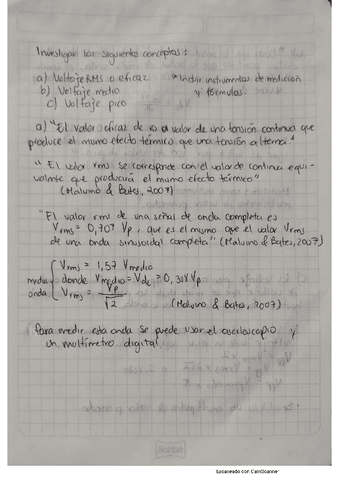 Investigar los siguientes conceptos:
a) Voltaje RMS o eficaz * Incluir instrumentos de medición
b) Voltaje medio y fórmulas.
c) Voltaje pico
a) "El valor eficaz de es el valor de una tensión continua que
produce el mismo efecto térmico que una tensión alterna"
"El valor rms se corresponde con el valor de continua equi-
valente que producirá el mismo efecto térmico"
(Malvino & Bates, 2007)
"El valor rms de una señal de onda completa es
Vrms = 0,707 Vp, que es el mismo que el valor Vrms
de una onda sinusoidal completa" (Malvino & Bates, 2007)
Vrms = 1,57 Vmedio
media donde Vmedio = Vdc = 0,318 Vp
onda Vrms = Vp/√2 (Malvino & Bates, 2007)
Para medir esta onda se puede usar el osciloscopio y
un multímetro digital.
Escaneado con CamScanner